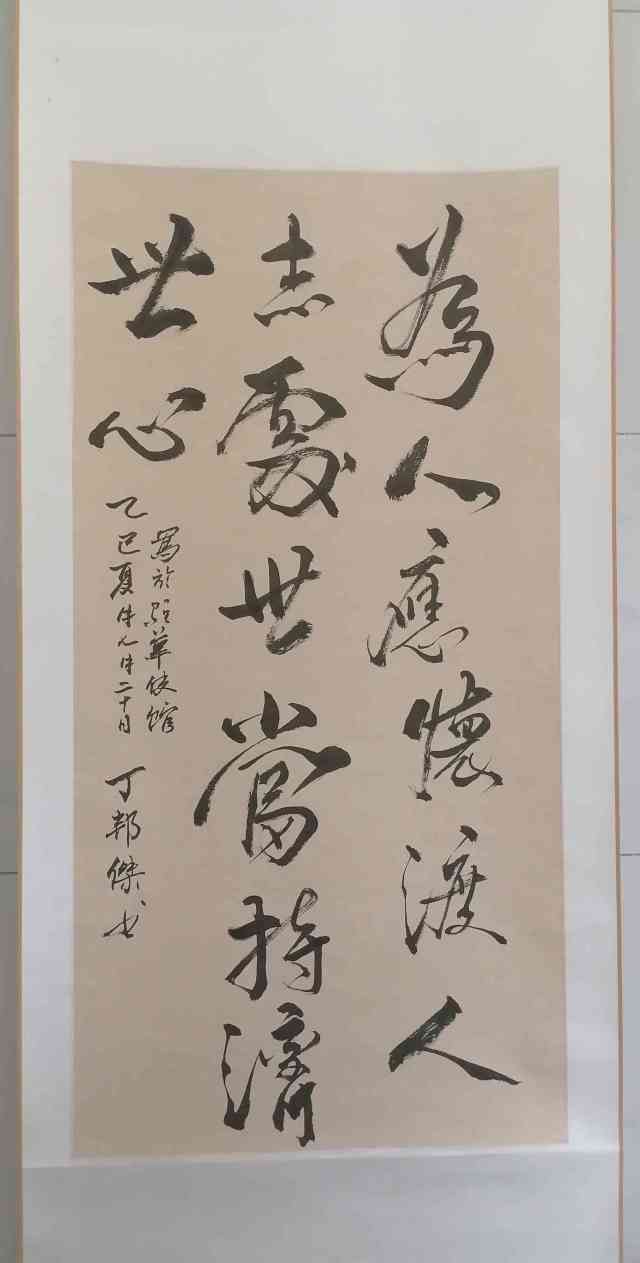 為人應懷渡人
志處世當持濟
世心
寫於駐華使館
乙巳夏 二十日
丁邦傑書